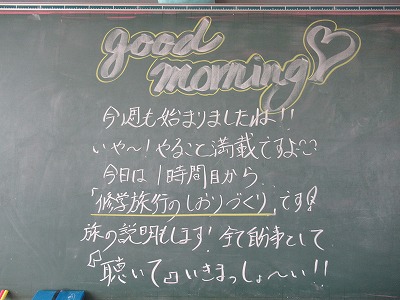 good
morning♡
今週も始まりましたね!!
いや~!やること満載ですよ
今日は1時間目から
「修学旅行のしおりづくり」です!
旅の説明もします!全て自分事として
『聴いて』いきまっしょ~い!!